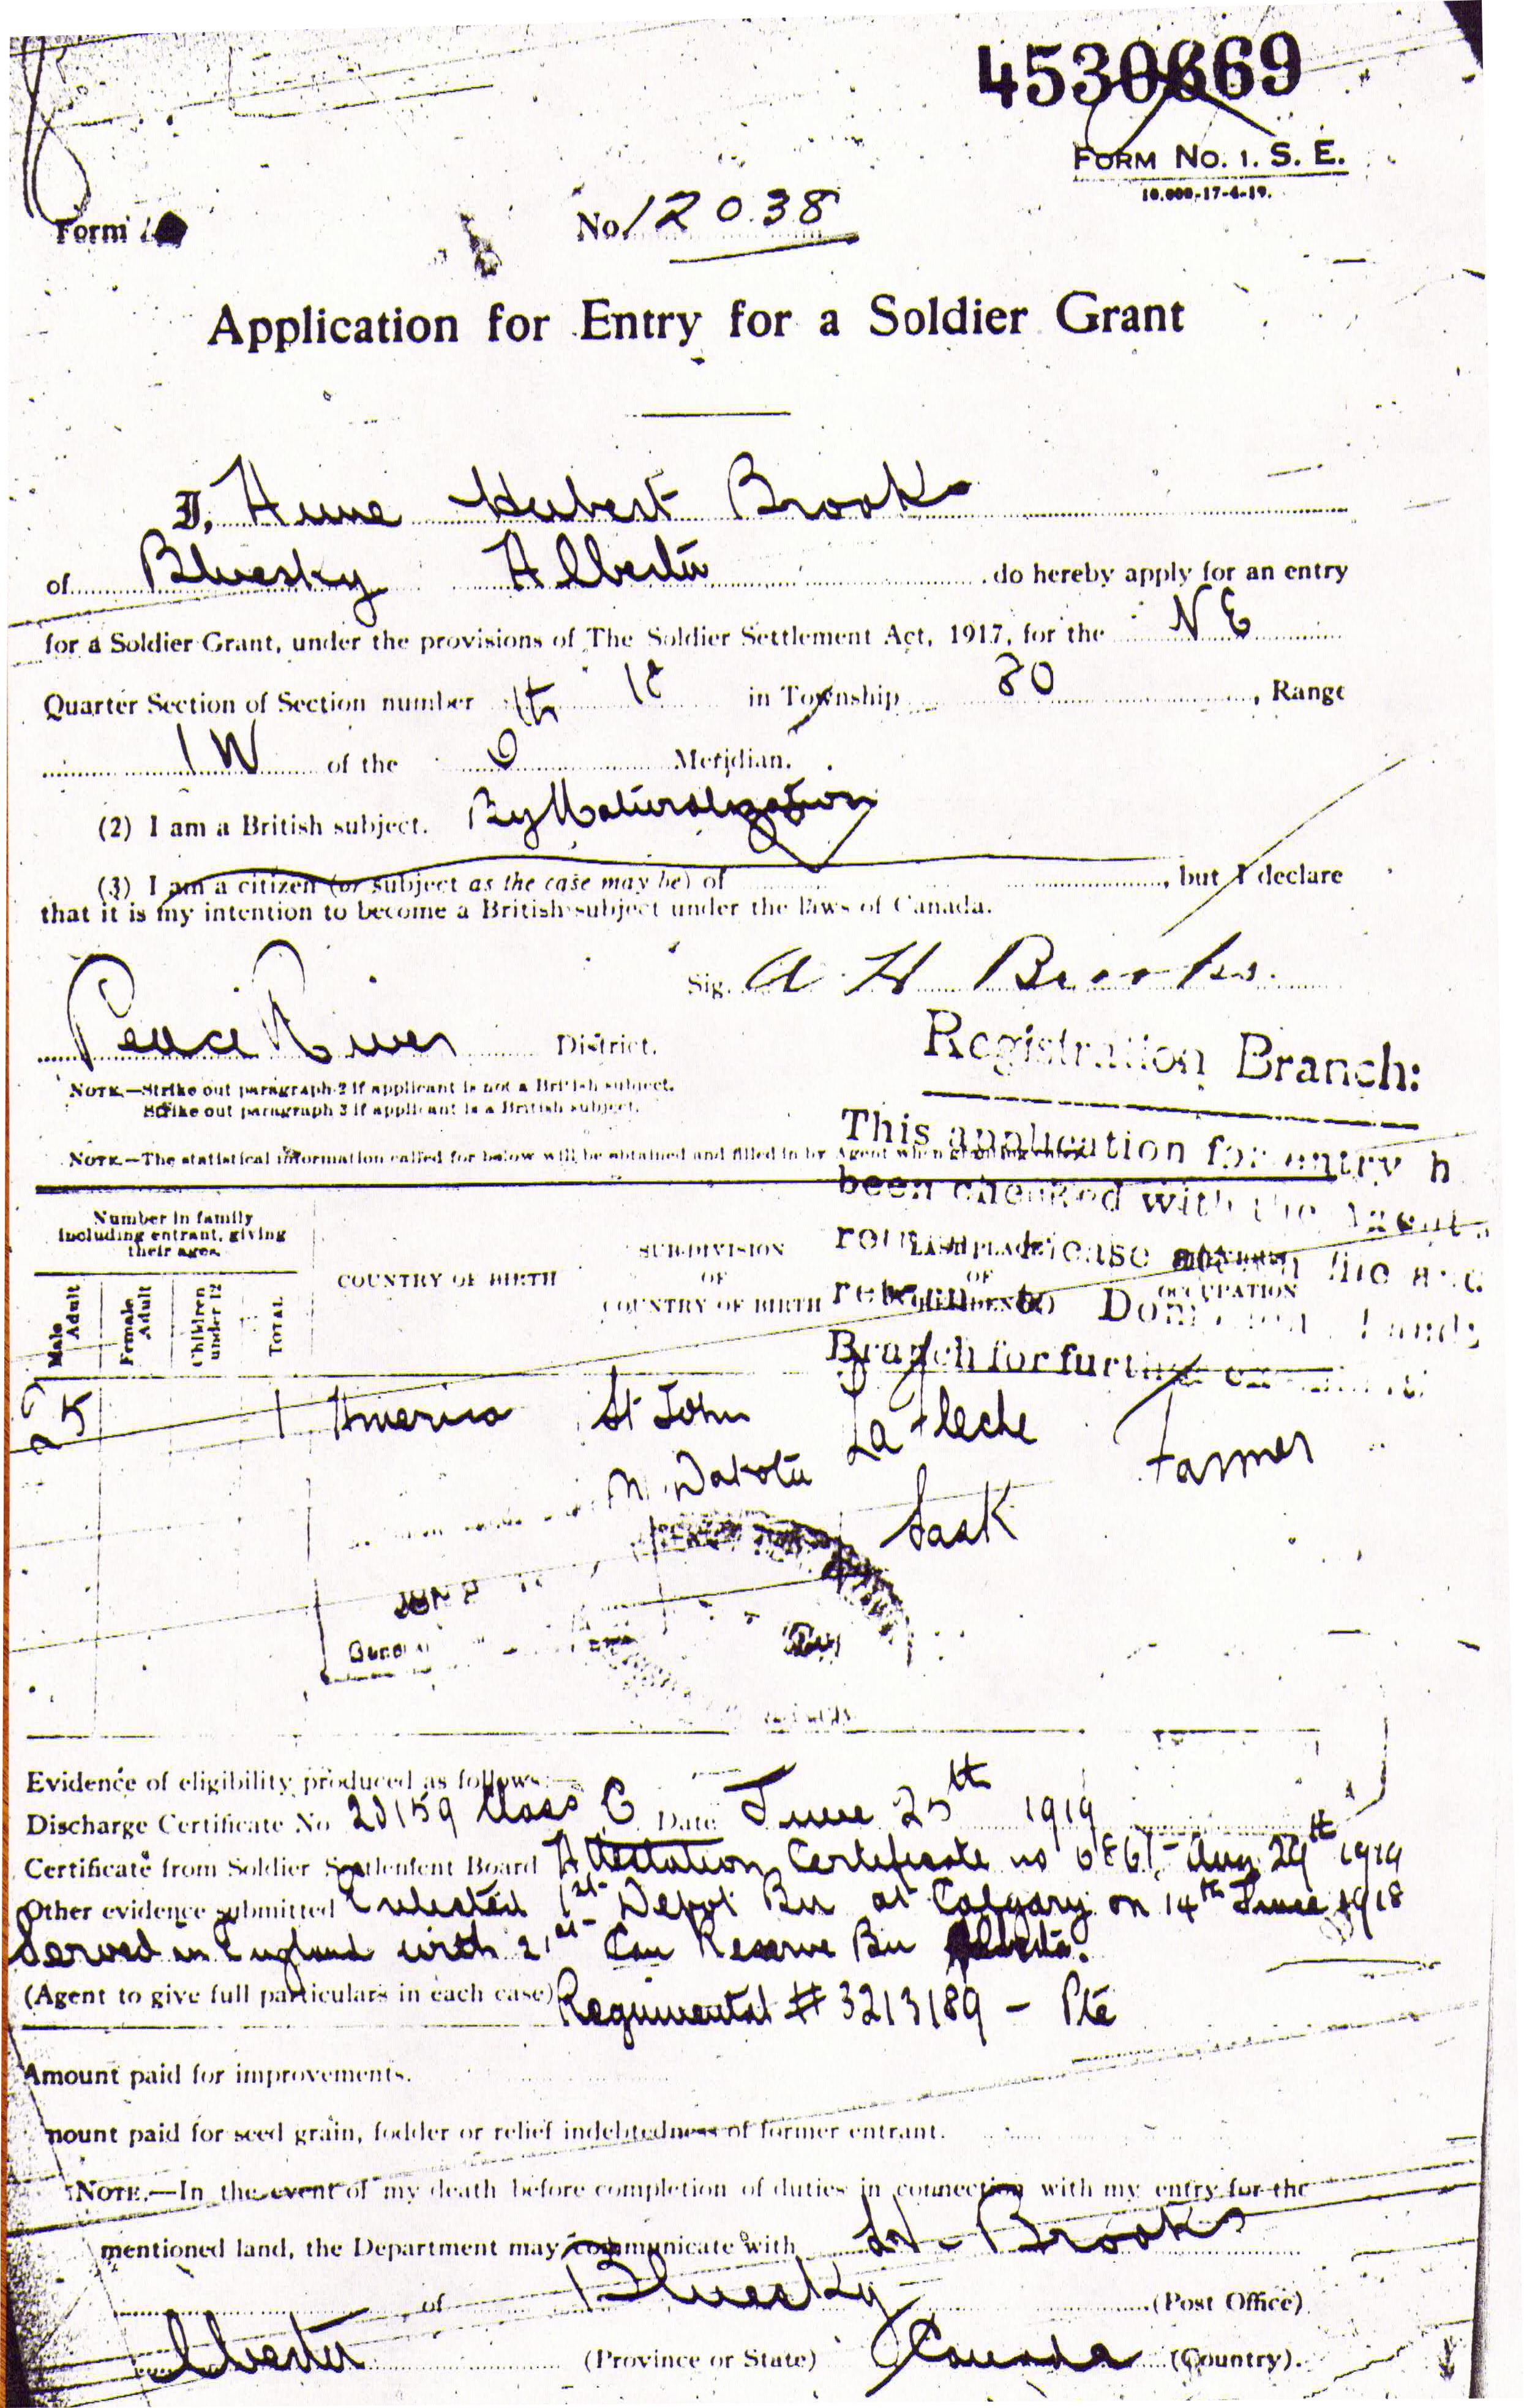 4530669
FORM No. 1. S. E.
10,000-17-4-19.
Form
No. 12038
Application for Entry for a Soldier Grant
I, Hubert Brooks
of Bluesky Alberta do hereby apply for an entry
for a Soldier Grant, under the provisions of The Soldier Settlement Act, 1917, for the N E
Quarter Section of Section number in Township 80, Range
1 W of the 6th Meridian.
(2) I am a British subject. By Naturalization
(3) I am a citizen (or subject as the case may be) of , but I declare
that it is my intention to become a British subject under the laws of Canada.
Sig. A H Brooks.
Peace River District.
NOTE.—Strike out paragraph 2 if applicant is not a British subject.
Strike out paragraph 3 if applicant is a British subject.
NOTE.—The statistical information called for below will be obtained and filled in by Agent when granting entry.
Registration Branch:
This application for entry h
been checked with the
Branch for further
Number in family
including entrant, giving
their ages.
Male Adult
Female Adult
Children under 12
TOTAL
COUNTRY OF BIRTH
SUB-DIVISION OF COUNTRY OF BIRTH
LAST PLACE OF RESIDENCE
OCCUPATION
25 1 America St John La Fleche Farmer
N. Dakota Sask
Evidence of eligibility produced as follows:—
Discharge Certificate No 20159 Class C Date June 25th 1919
Certificate from Soldier Settlement Board Attestation Certificate no Aug 29th 1919
Other evidence submitted Enlisted 1st Depot Bn at Calgary on 14th June 1918
Served in England with 21st Can Reserve Bn Alberta.
(Agent to give full particulars in each case) Regimental # 3213189 - Pte
Amount paid for improvements.
mount paid for seed grain, fodder or relief indebtedness of former entrant.
NOTE.—In the event of my death before completion of duties in connection with my entry for the
mentioned land, the Department may communicate with Brooks
of Bluesky (Post Office)
Alberta (Province or State) Canada (Country).